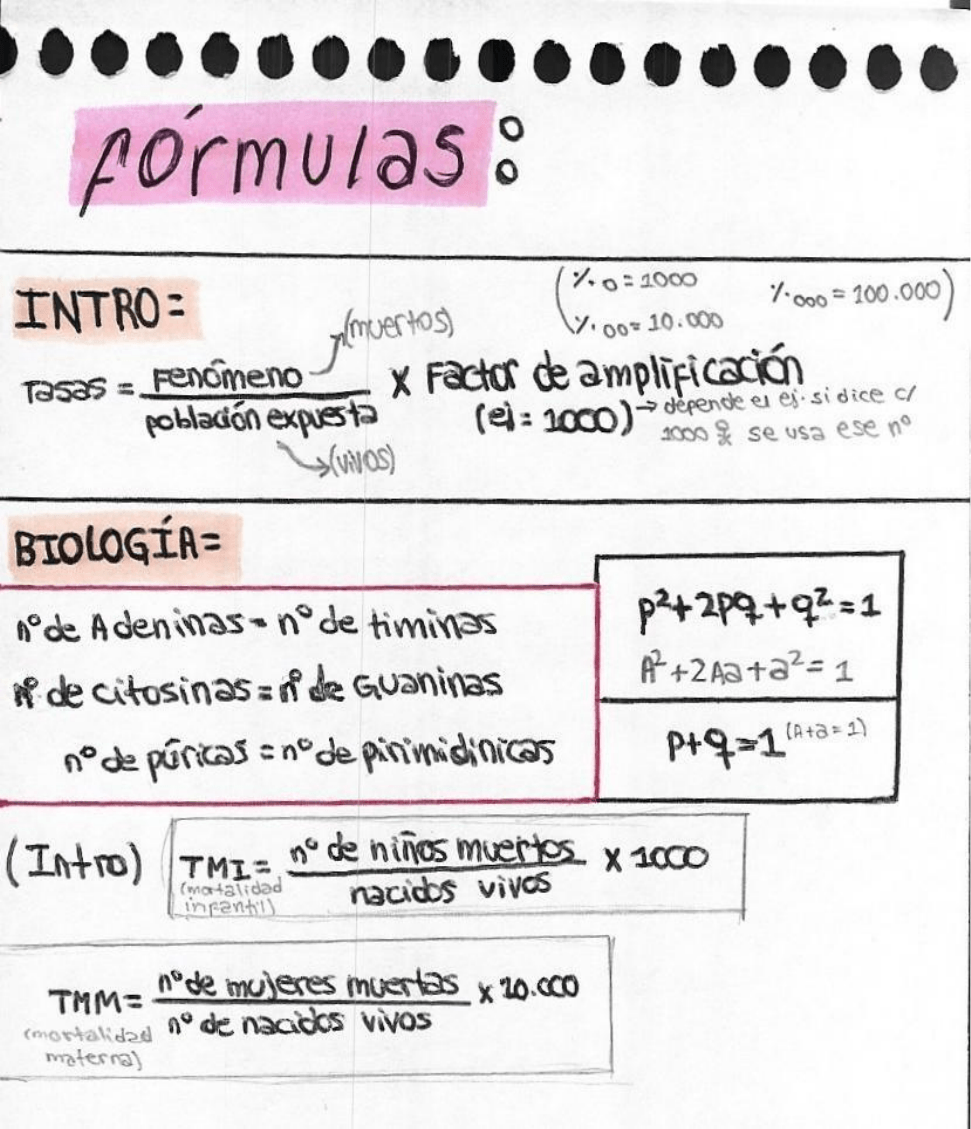 fórmulas:
INTRO=
(%.0=1000 %.000=100.000)
%.00=10.000
(muertos)
Tasas = Fenómeno / población expuesta X Factor de amplificación
(ej = 1000) → depende el ej. si dice c/
1000 se usa ese nº
(vivos)
BIOLOGÍA=
nº de Adeninas = nº de timinas
nº de citosinas = nº de Guaninas
nº de púricas = nº de pirimidinicas
p²+2pq+q²=1
A²+2Aa+a²=1
p+q=1 (A+a=1)
(Intro) TMI= nº de niños muertos / nacidos vivos X 1000
(mortalidad
infantil)
TMM= nº de mujeres muertas / nº de nacidos vivos x 10.000
(mortalidad
materna)